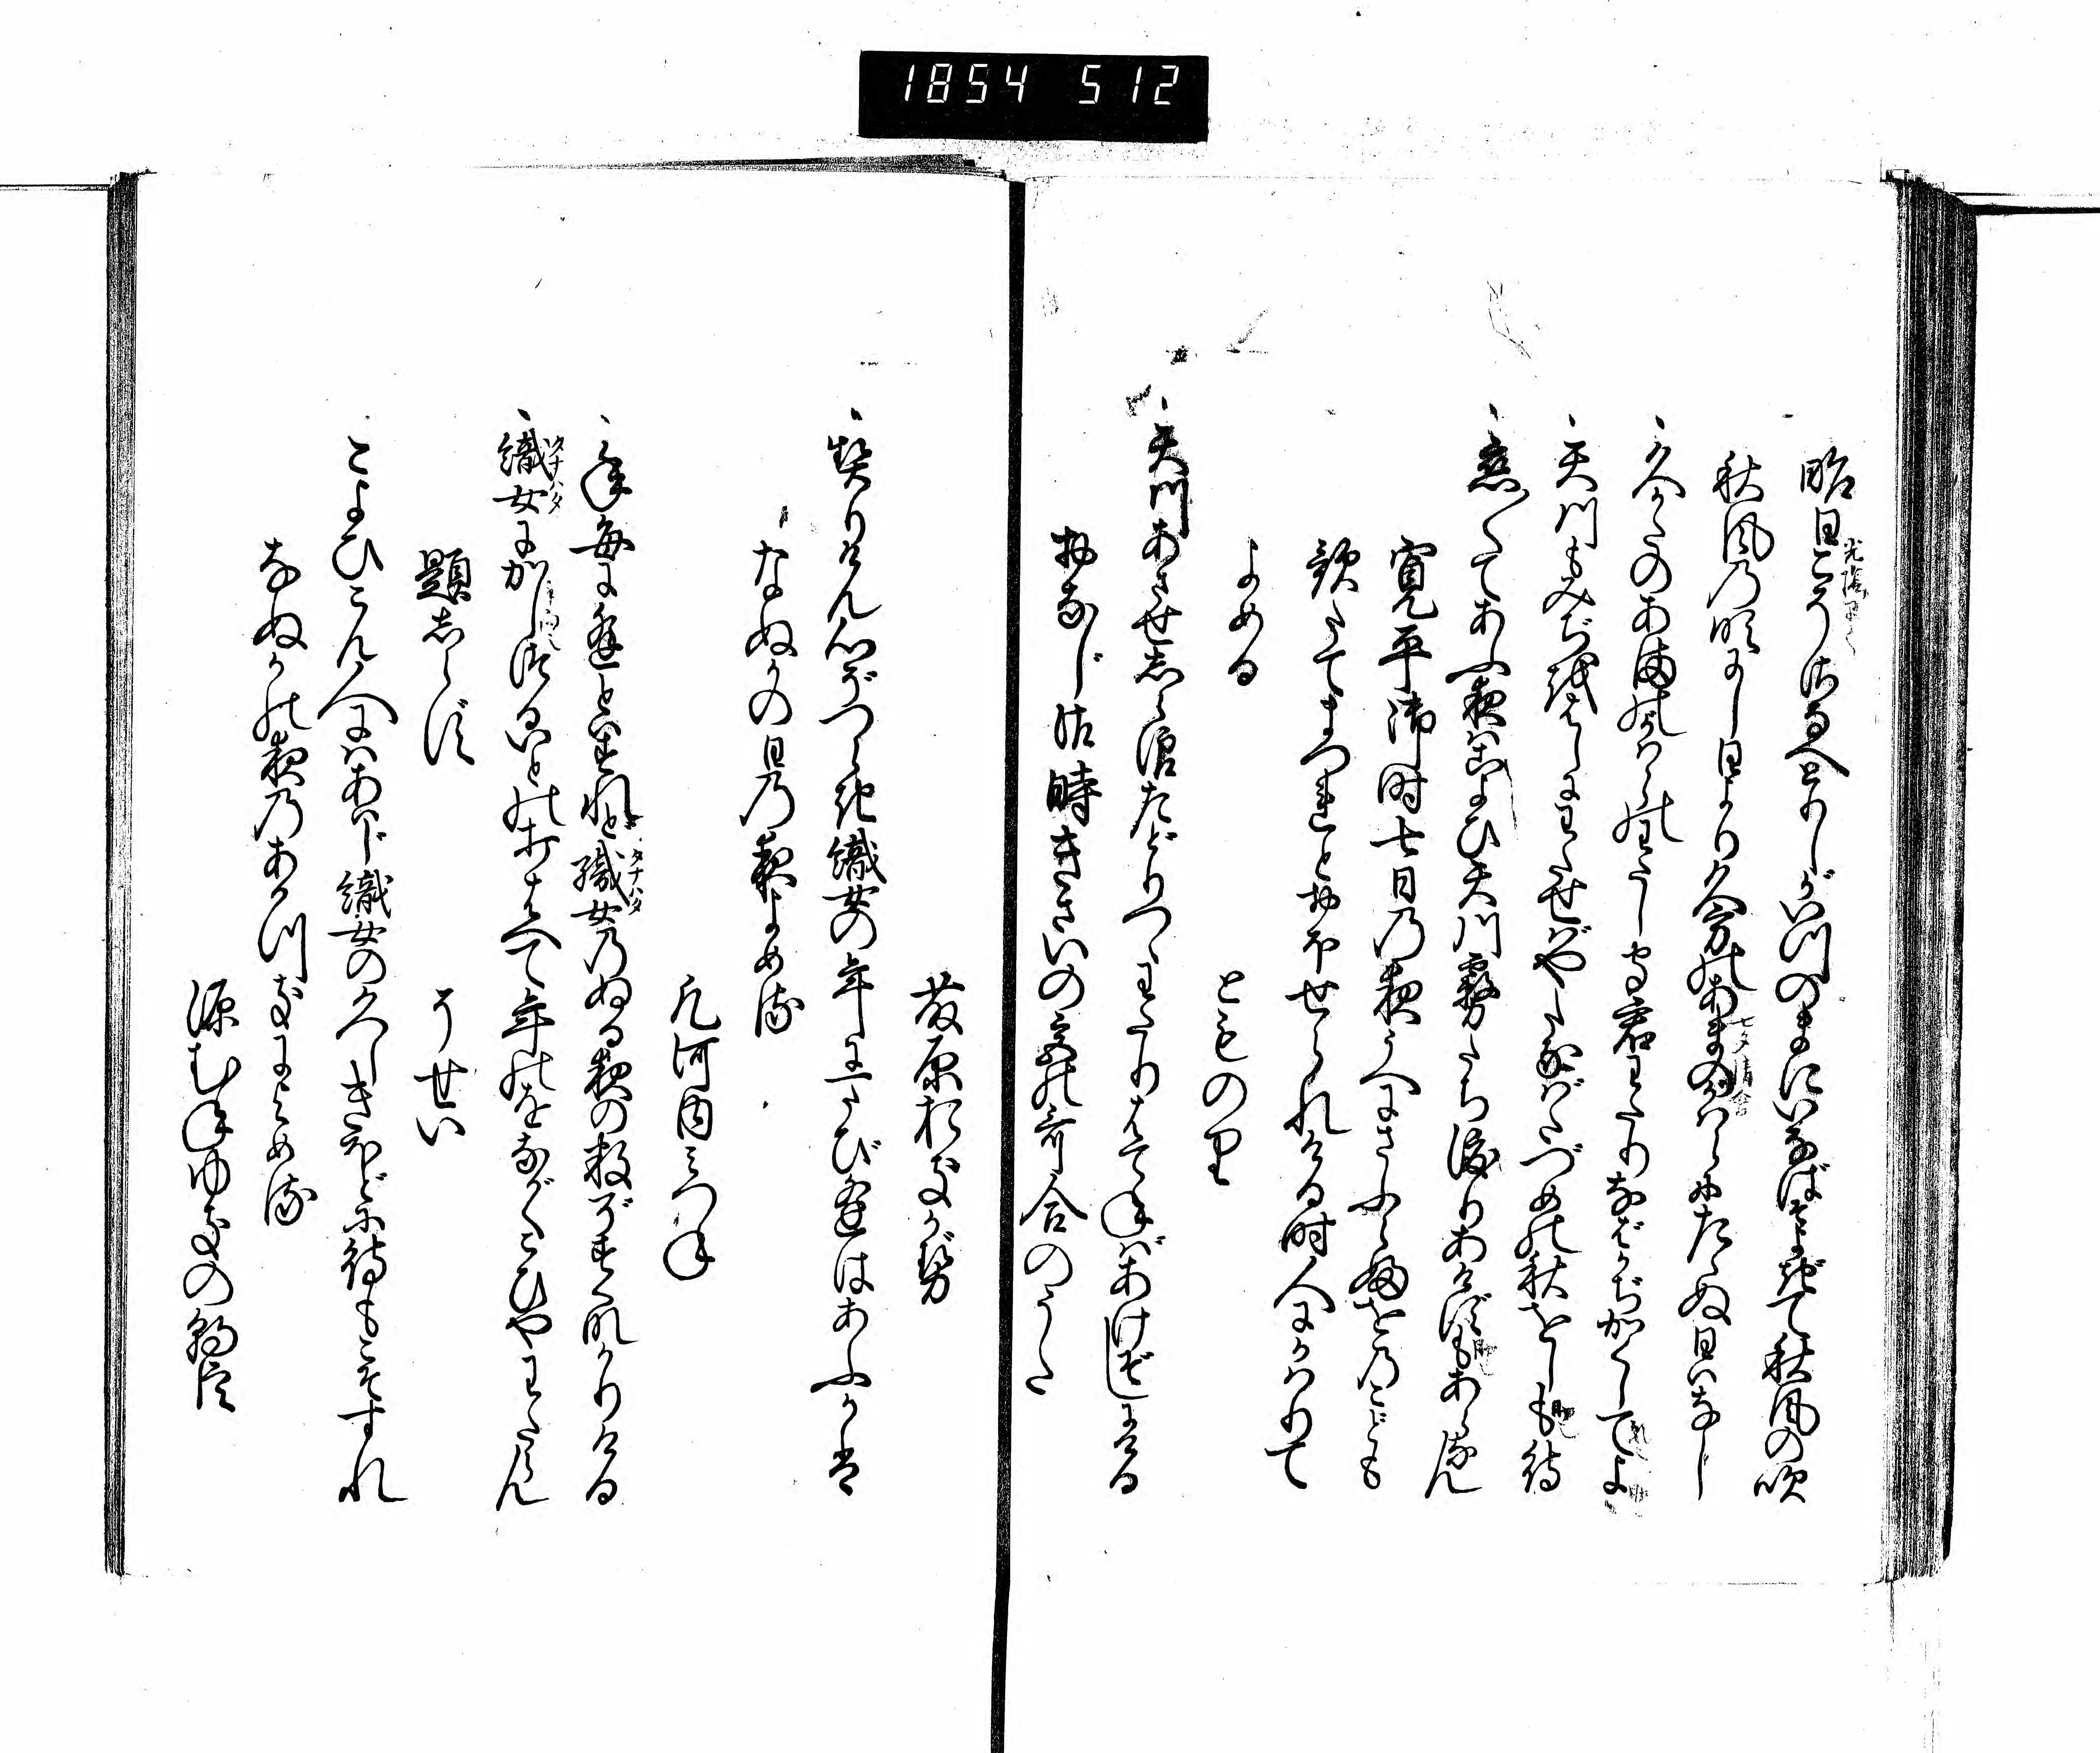 1854 512
昨日こそさなへとりしがいつのまにいなばそよぎて秋風の吹
秋風乃吹にし日より久方のあまのかはらにたゝぬ日はなし
久かたのあまのかはらのわたし守君わたりなばかぢかくしてよ
天川もみぢをはしにわたせばやたなばたづめの秋をしも待
恋〳〵てあふ夜はこよひ天川霧たち渡りあけずもあらなん
寛平御時七日乃夜うへにさふらふをのこども
歌たてまつれとおほせられける時人にかはりて
よめる
とものり
天川あさせしら浪たどりつゝわたりはてねばあけぞしにける
おなじ御時きさいの宮の哥合のうた
藤原おきかぜ
契りけん心ぞつらき織女の年に一たび逢はあふかは
なぬかの日乃夜よめる
凡河内みつね
年毎に逢とはすれど織女乃ぬる夜の数ぞすくなかりける
タナハタ
織女にかしつる糸の打はへて年のをながくこひやわたらん
タナハタ
題しらず
そせい
こよひこん人にはあはじ織女の久しきほどに待もこそすれ
なぬかの夜乃あか月によめる
源むねゆきの朝臣